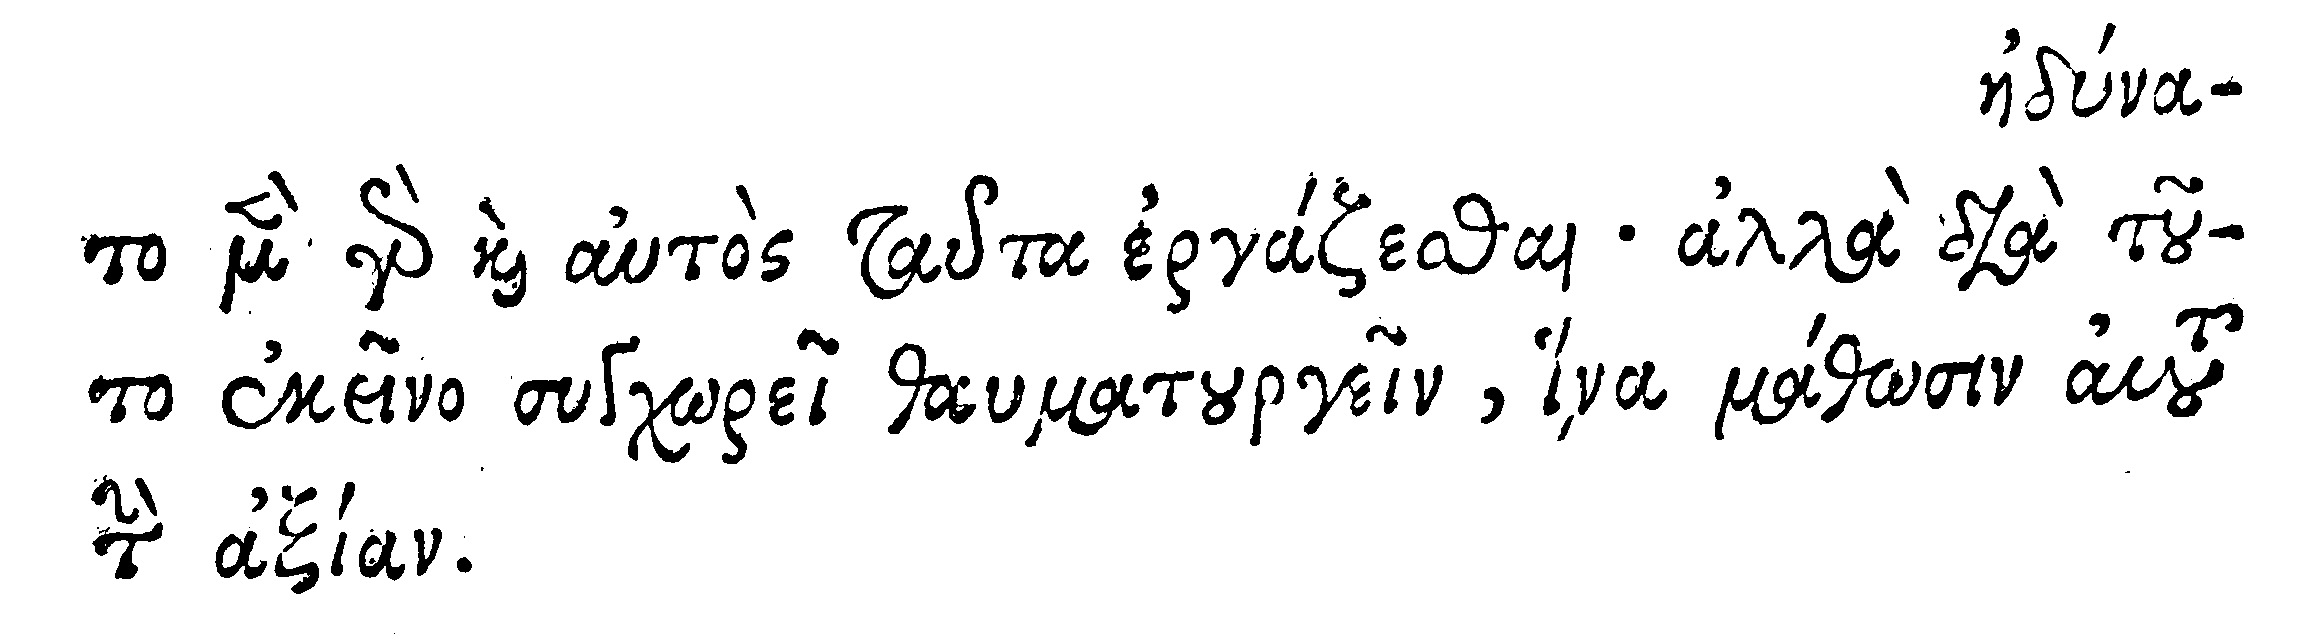 ἠδύνα-
το μὲν γὰρ καὶ αὐτὸς ταῦτα ἐργάζεσθαι · ἀλλὰ διὰ τοῦ-
το ἐκεῖνο συγχωρεῖ θαυματουργεῖν, ἵνα μάθωσιν αὐτοῦ
τὴν ἀξίαν.